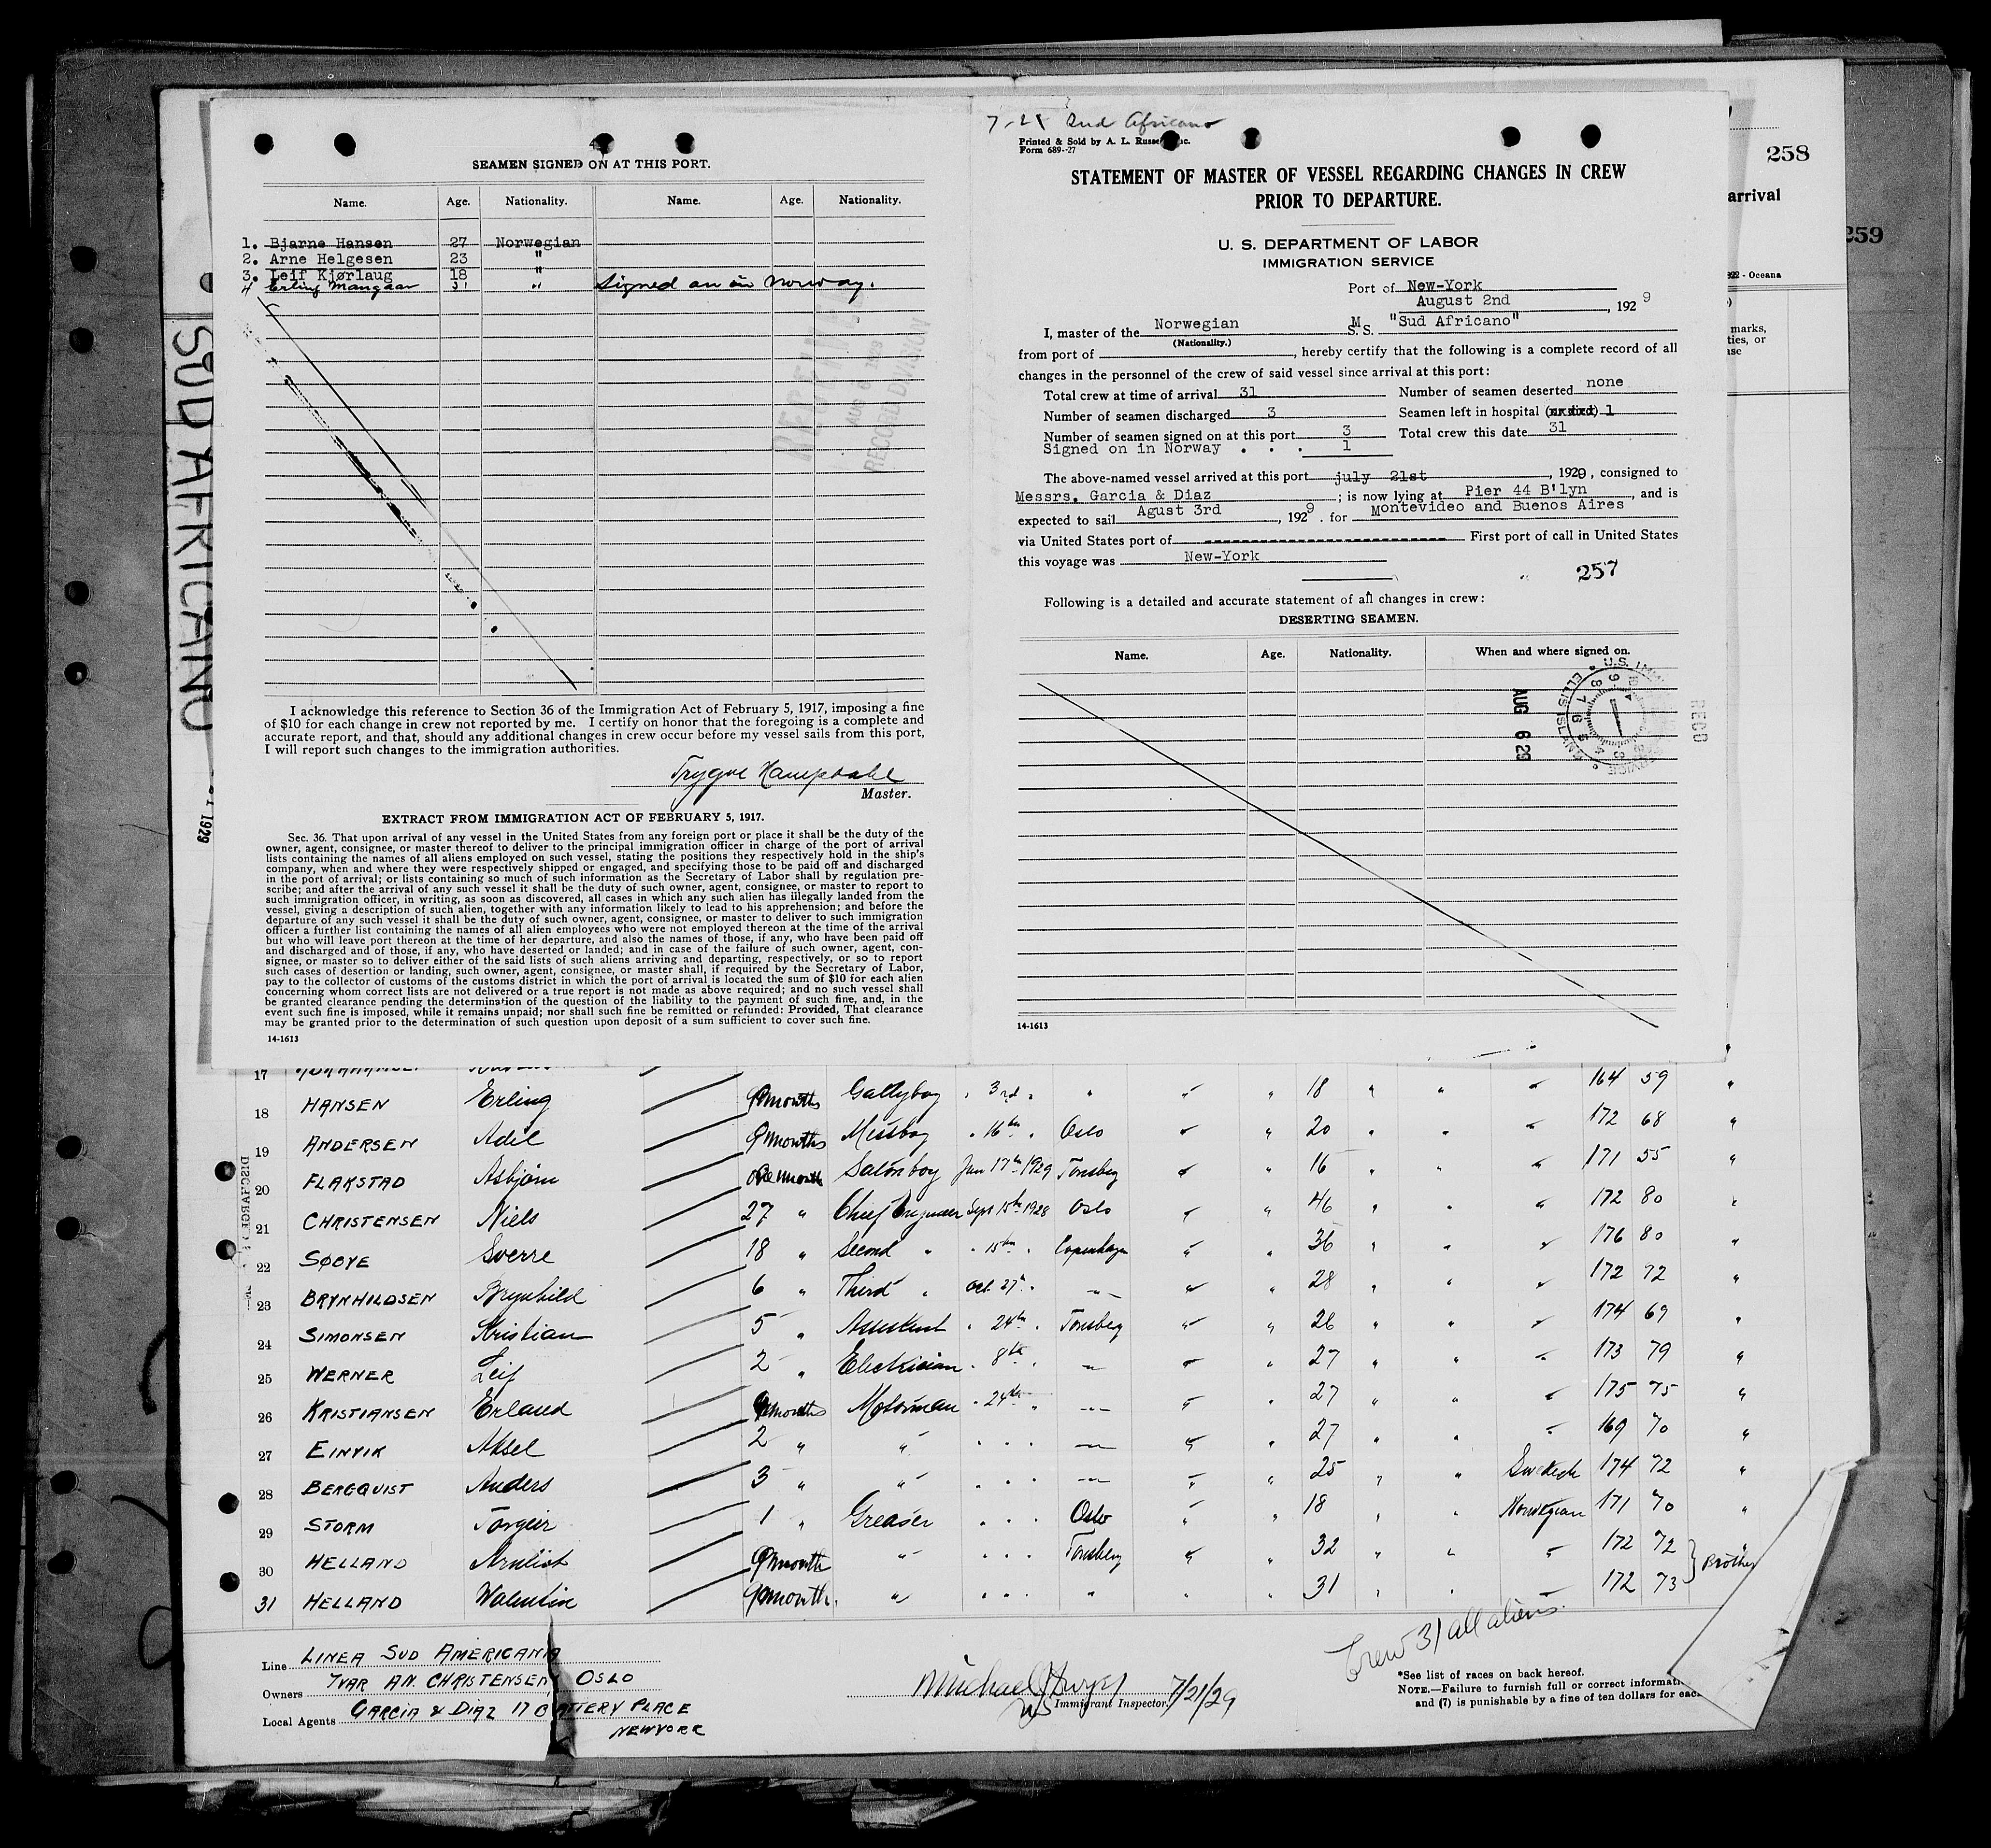 SUD AFRICANO
1929
SEAMEN SIGNED ON AT THIS PORT.
Name. Age. Nationality. Name. Age. Nationality.
1. Bjarne Hansen 27 Norwegian
2. Arne Helgesen 23 "
3. Leif Kjørlaug 18 "
4 Erling Mangaar 31 " Signed on in Norway.
AUG 6 1929
RECORD DIVISION
I acknowledge this reference to Section 36 of the Immigration Act of February 5, 1917, imposing a fine
of $10 for each change in crew not reported by me. I certify on honor that the foregoing is a complete and
accurate report, and that, should any additional changes in crew occur before my vessel sails from this port,
I will report such changes to the immigration authorities.
Trygve
Master.
EXTRACT FROM IMMIGRATION ACT OF FEBRUARY 5, 1917.
Sec. 36. That upon arrival of any vessel in the United States from any foreign port or place it shall be the duty of the
owner, agent, consignee, or master thereof to deliver to the principal immigration officer in charge of the port of arrival
lists containing the names of all aliens employed on such vessel, stating the positions they respectively hold in the ship's
company, when and where they were respectively shipped or engaged, and specifying those to be paid off and discharged
in the port of arrival; or lists containing so much of such information as the Secretary of Labor shall by regulation pre-
scribe; and after the arrival of any such vessel it shall be the duty of such owner, agent, consignee, or master to report to
such immigration officer, in writing, as soon as discovered, all cases in which any such alien has illegally landed from the
vessel, giving a description of such alien, together with any information likely to lead to his apprehension; and before the
departure of any such vessel it shall be the duty of such owner, agent, consignee, or master to deliver to such immigration
officer a further list containing the names of all alien employees who were not employed thereon at the time of the arrival
but who will leave port thereon at the time of her departure, and also the names of those, if any, who have been paid off
and discharged and of those, if any, who have deserted or landed; and in case of the failure of such owner, agent, con-
signee, or master so to deliver either of the said lists of such aliens arriving and departing, respectively, or so to report
such cases of desertion or landing, such owner, agent, consignee, or master shall, if required by the Secretary of Labor,
pay to the collector of customs of the customs district in which the port of arrival is located the sum of $10 for each alien
concerning whom correct lists are not delivered or a true report is not made as above required; and no such vessel shall
be granted clearance pending the determination of the question of the liability to the payment of such fine, and, in the
event such fine is imposed, while it remains unpaid; nor shall such fine be remitted or refunded: Provided, That clearance
may be granted prior to the determination of such question upon deposit of a sum sufficient to cover such fine.
14-1613
7-21 Sud Africano
Printed & Sold by A. L. Russell Inc.
Form 689-27
STATEMENT OF MASTER OF VESSEL REGARDING CHANGES IN CREW
PRIOR TO DEPARTURE.
U. S. DEPARTMENT OF LABOR
IMMIGRATION SERVICE
Port of New-York
August 2nd, 1929
I, master of the Norwegian M S.S. "Sud Africano"
(Nationality.)
from port of , hereby certify that the following is a complete record of all
changes in the personnel of the crew of said vessel since arrival at this port:
Total crew at time of arrival 31 Number of seamen deserted none
Number of seamen discharged 3 Seamen left in hospital (or died) 1
Number of seamen signed on at this port 3 Total crew this date 31
Signed on in Norway . . . 1
The above-named vessel arrived at this port july 21st, 1929, consigned to
Messrs. Garcia & Diaz ; is now lying at Pier 44 B'lyn, and is
expected to sail Agust 3rd, 1929. for Montevideo and Buenos Aires
via United States port of ---------- First port of call in United States
this voyage was New-York
257
Following is a detailed and accurate statement of all changes in crew:
DESERTING SEAMEN.
Name. Age. Nationality. When and where signed on.
AUG 6 29
ELLIS ISLAND
RECD
14-1613
258
arrival
259
- Oceana
marks,
ties, or
ase
17
18 HANSEN Erling 9 months Galleyboy " 3rd " " " " 18 " " " 164 59 "
19 ANDERSEN Adil 9 months Messboy " 16th " Oslo " " 20 " " " 172 68 "
20 FLAKSTAD Asbjørn one month Saloonboy Jun 17th 1929 Tønsberg " " 16 " " " 171 55 "
21 CHRISTENSEN Niels 27 " Chief Engineer Sept 15th 1928 Oslo " " 46 " " " 172 80 "
22 SØDYE Sverre 18 " Second " " 15th " Copenhagen " " 36 " " " 176 80 "
23 BRYNHILDSEN Brynhild 6 " Third " Oct. 27th " " " " 28 " " " 172 72 "
24 SIMONSEN Kristian 5 " Assistent " 24th " Tønsberg " " 26 " " " 174 69 "
25 WERNER Leif 2 " Electrician " 8th " " " " 27 " " " 173 79 "
26 KRISTIANSEN Erland 9 months Motorman " 24th " " " " 27 " " " 175 75 "
27 EINVIK Aksel 2 " " " " " " " " 27 " " " 169 70 "
28 BERGQUIST Anders 3 " " " " " " " " 25 " " Swedish 174 72 "
29 STORM Torgeir 1 " Greaser " " " Oslo " " 18 " " Norwegian 171 70 "
30 HELLAND Arnliot 9 month " " " " Tønsberg " " 32 " " " 172 72 "
31 HELLAND Valentin 9 month " " " " " " " 31 " " " 172 73 } Brother
Crew 31 all aliens.
Line LINEA SUD AMERICANA
Owners IVAR AN. CHRISTENSEN, OSLO
Local Agents GARCIA & DIAZ 17 BATTERY PLACE
NEWYORK
Michael
Immigrant Inspector. 7/21/29
*See list of races on back hereof.
NOTE.—Failure to furnish full or correct informati
and (7) is punishable by a fine of ten dollars for eac